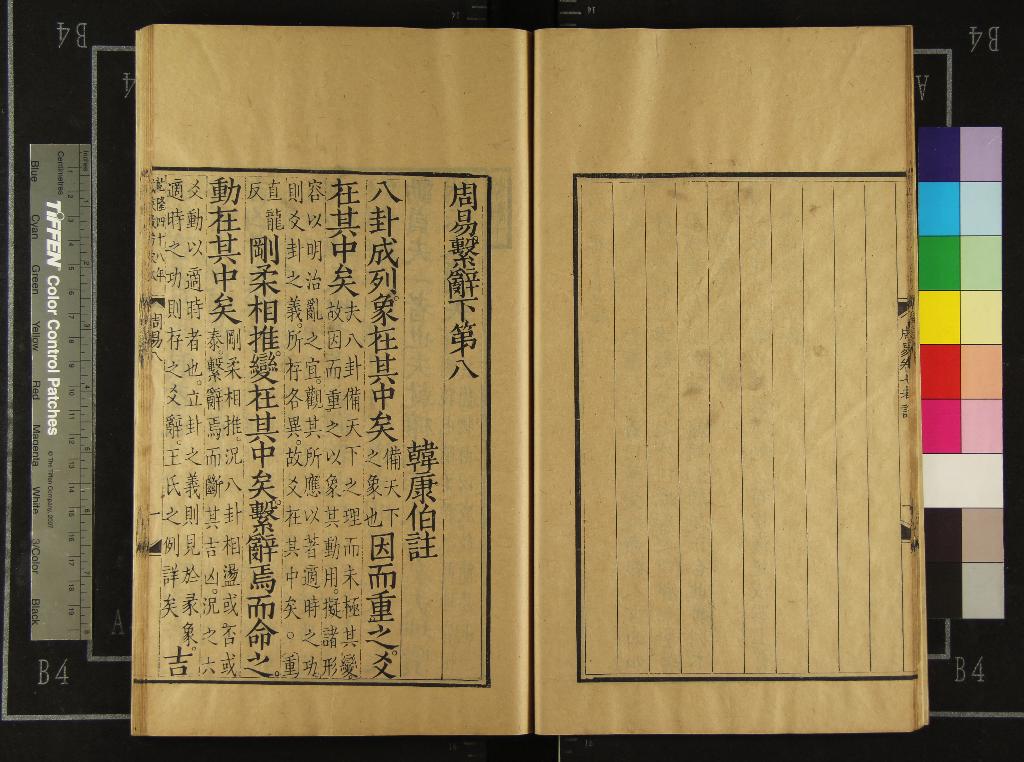 周易卷七考證
周易繫辭下第八
韓康伯註
八卦成列。象在其中矣備天下之象也因而重之。爻
在其中矣夫八卦備天下之理而未極其變故因而重之以象其動用。擬諸形
容以明治亂之宜。觀其所應以著適時之功
則爻卦之義。所存各異。故爻在其中矣。重
直龍反剛柔相推。變在其中矣。繫辭焉而命之。
動在其中矣剛柔相推。況八卦相盪或否或泰。繫辭焉而斷其吉凶。況之六
爻動以適時者也。立卦之義則見於彖象。
適時之功則存之爻辭。王氏之例詳矣吉
乾隆四十八年
周易八
一
B4
B4
B4
B4
A
A
4
Centimetres
Inches
TIFFEN Color Control Patches
© The Tiffen Company, 2007
Blue
Cyan
Green
Yellow
Red
Magenta
White
3/Color
Black